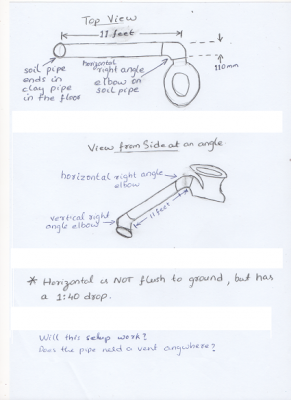 Top View
11 feet
soil pipe
ends in
clay pipe
in the floor
horizontal
right angle
elbow on
soil pipe
110mm
View from Side at an angle
horizontal right angle
elbow
11 feet
vertical right
angle elbow
* Horizontal is NOT flush to ground, but has
a 1:40 drop.
Will this setup work?
Does the pipe need a vent anywhere?